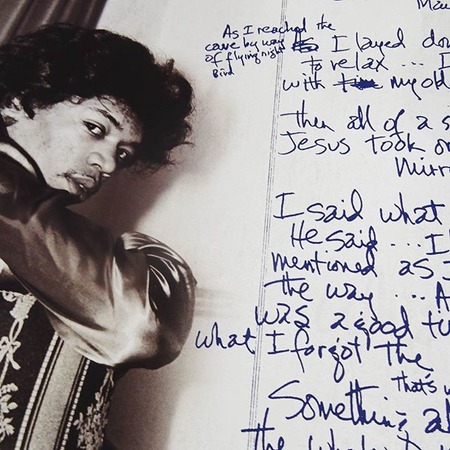 Mau
As I reached the
cave by way
of flying night
Bird
I layed do
to relax ... I
with my old
Then all of a s
Jesus took o
Mirr
I said what
He said ... I
mentioned as J
the way .... A
was a good tu
what I forgot the
That's w
Something a
the